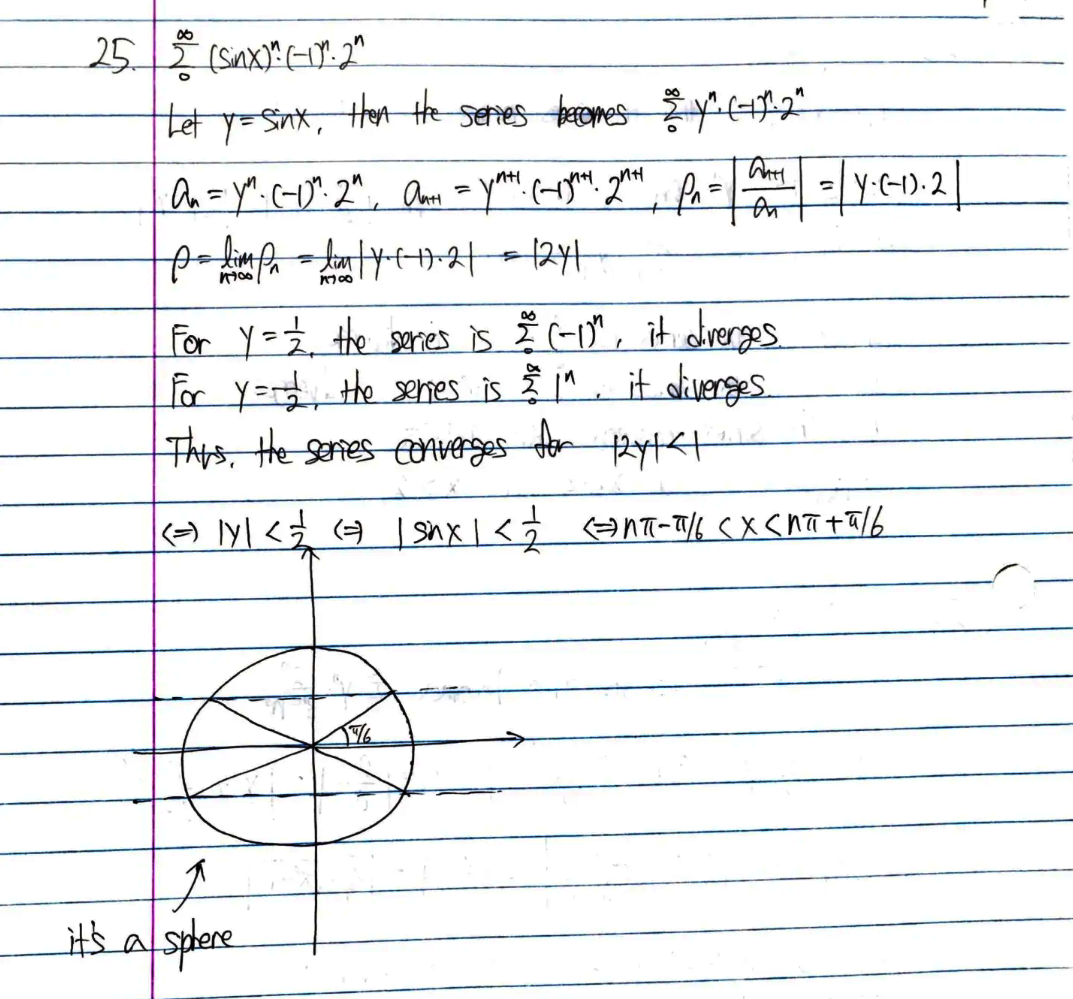 25. ∞ Σ 0 (sinx)ⁿ·(-1)ⁿ·2ⁿ
Let y = sinx, then the series becomes ∞ Σ 0 yⁿ·(-1)ⁿ·2ⁿ
aₙ = yⁿ·(-1)ⁿ·2ⁿ, aₙ₊₁ = yⁿ⁺¹·(-1)ⁿ⁺¹·2ⁿ⁺¹, ρₙ = |aₙ₊₁/aₙ| = |y·(-1)·2|
ρ = lim n→∞ ρₙ = lim n→∞ |y·(-1)·2| = |2y|
For y = 1/2, the series is ∞ Σ 0 (-1)ⁿ, it diverges.
For y = -1/2, the series is ∞ Σ 0 1ⁿ, it diverges.
Thus, the series converges for |2y| < 1
⇔ |y| < 1/2 ⇔ |sinx| < 1/2 ⇔ nπ - π/6 < x < nπ + π/6
π/6
it's a sphere